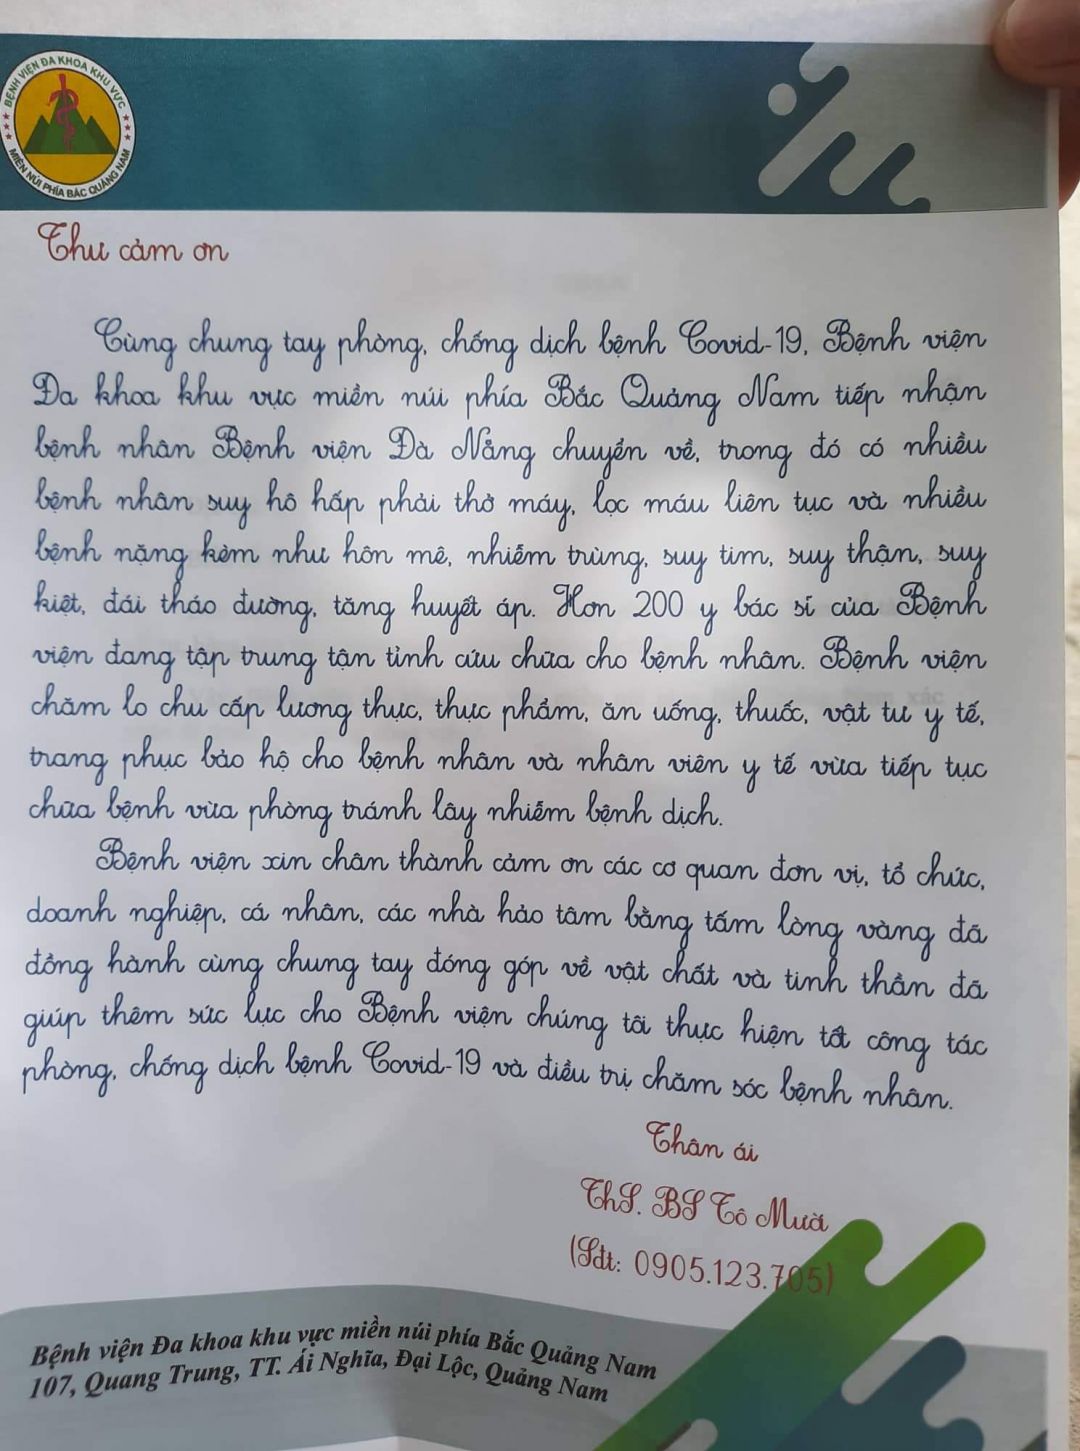 BỆNH VIỆN ĐA KHOA KHU VỰC
MIỀN NÚI PHÍA BẮC QUẢNG NAM
Thư cảm ơn
Cùng chung tay phòng, chống dịch bệnh Covid-19, Bệnh viện
Đa khoa khu vực miền núi phía Bắc Quảng Nam tiếp nhận
bệnh nhân Bệnh viện Đà Nẵng chuyển về, trong đó có nhiều
bệnh nhân suy hô hấp phải thở máy, lọc máu liên tục và nhiều
bệnh nặng kèm như hôn mê, nhiễm trùng, suy tim, suy thận, suy
kiệt, đái tháo đường, tăng huyết áp. Hơn 200 y bác sĩ của Bệnh
viện đang tập trung tận tình cứu chữa cho bệnh nhân. Bệnh viện
chăm lo chu cấp lương thực, thực phẩm, ăn uống, thuốc, vật tư y tế,
trang phục bảo hộ cho bệnh nhân và nhân viên y tế vừa tiếp tục
chữa bệnh vừa phòng tránh lây nhiễm bệnh dịch.
Bệnh viện xin chân thành cảm ơn các cơ quan đơn vị, tổ chức,
doanh nghiệp, cá nhân, các nhà hảo tâm bằng tấm lòng vàng đã
đồng hành cùng chung tay đóng góp về vật chất và tinh thần đã
giúp thêm sức lực cho Bệnh viện chúng tôi thực hiện tốt công tác
phòng, chống dịch bệnh Covid-19 và điều trị chăm sóc bệnh nhân.
Thân ái
ThS. BS Tô Mười
(Sđt: 0905.123.705)
Bệnh viện Đa khoa khu vực miền núi phía Bắc Quảng Nam
107, Quang Trung, TT. Ái Nghĩa, Đại Lộc, Quảng Nam